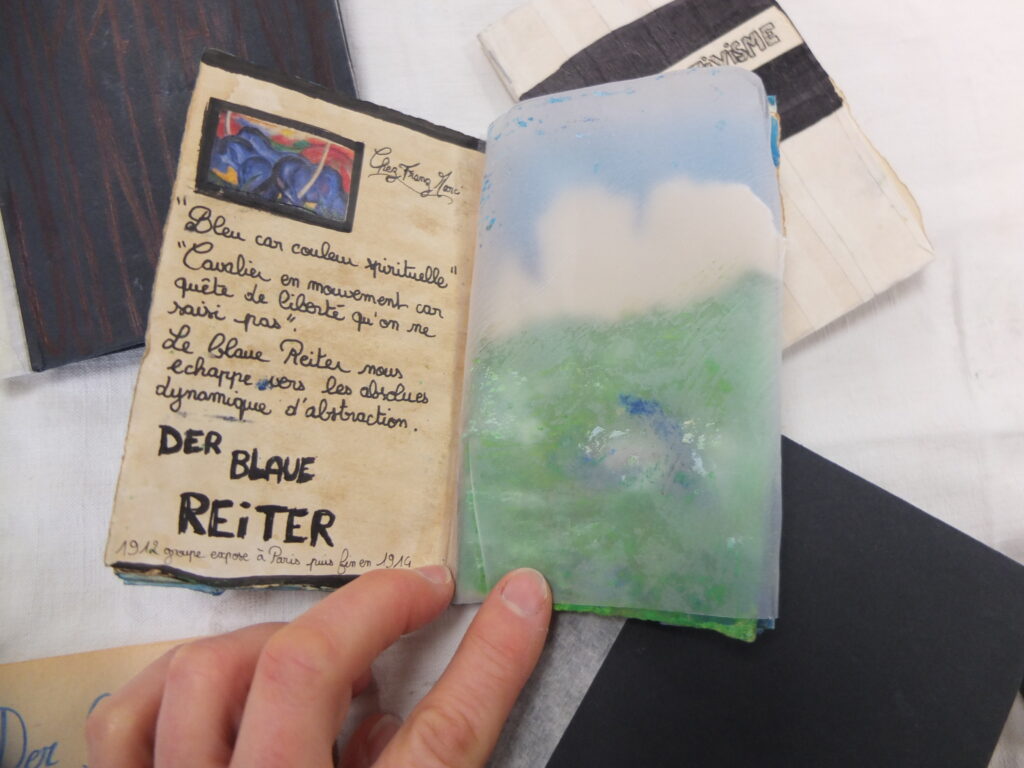 Chez Franz Marc
"Bleu car couleur spirituelle"
"Cavalier en mouvement car
quête de liberté qu'on ne
saisi pas".
Le blaue Reiter nous
echappe vers les absolues
dynamique d'abstraction.
DER
BLAUE
REiTER
1912 groupe expose à Paris puis fin en 1914
Der